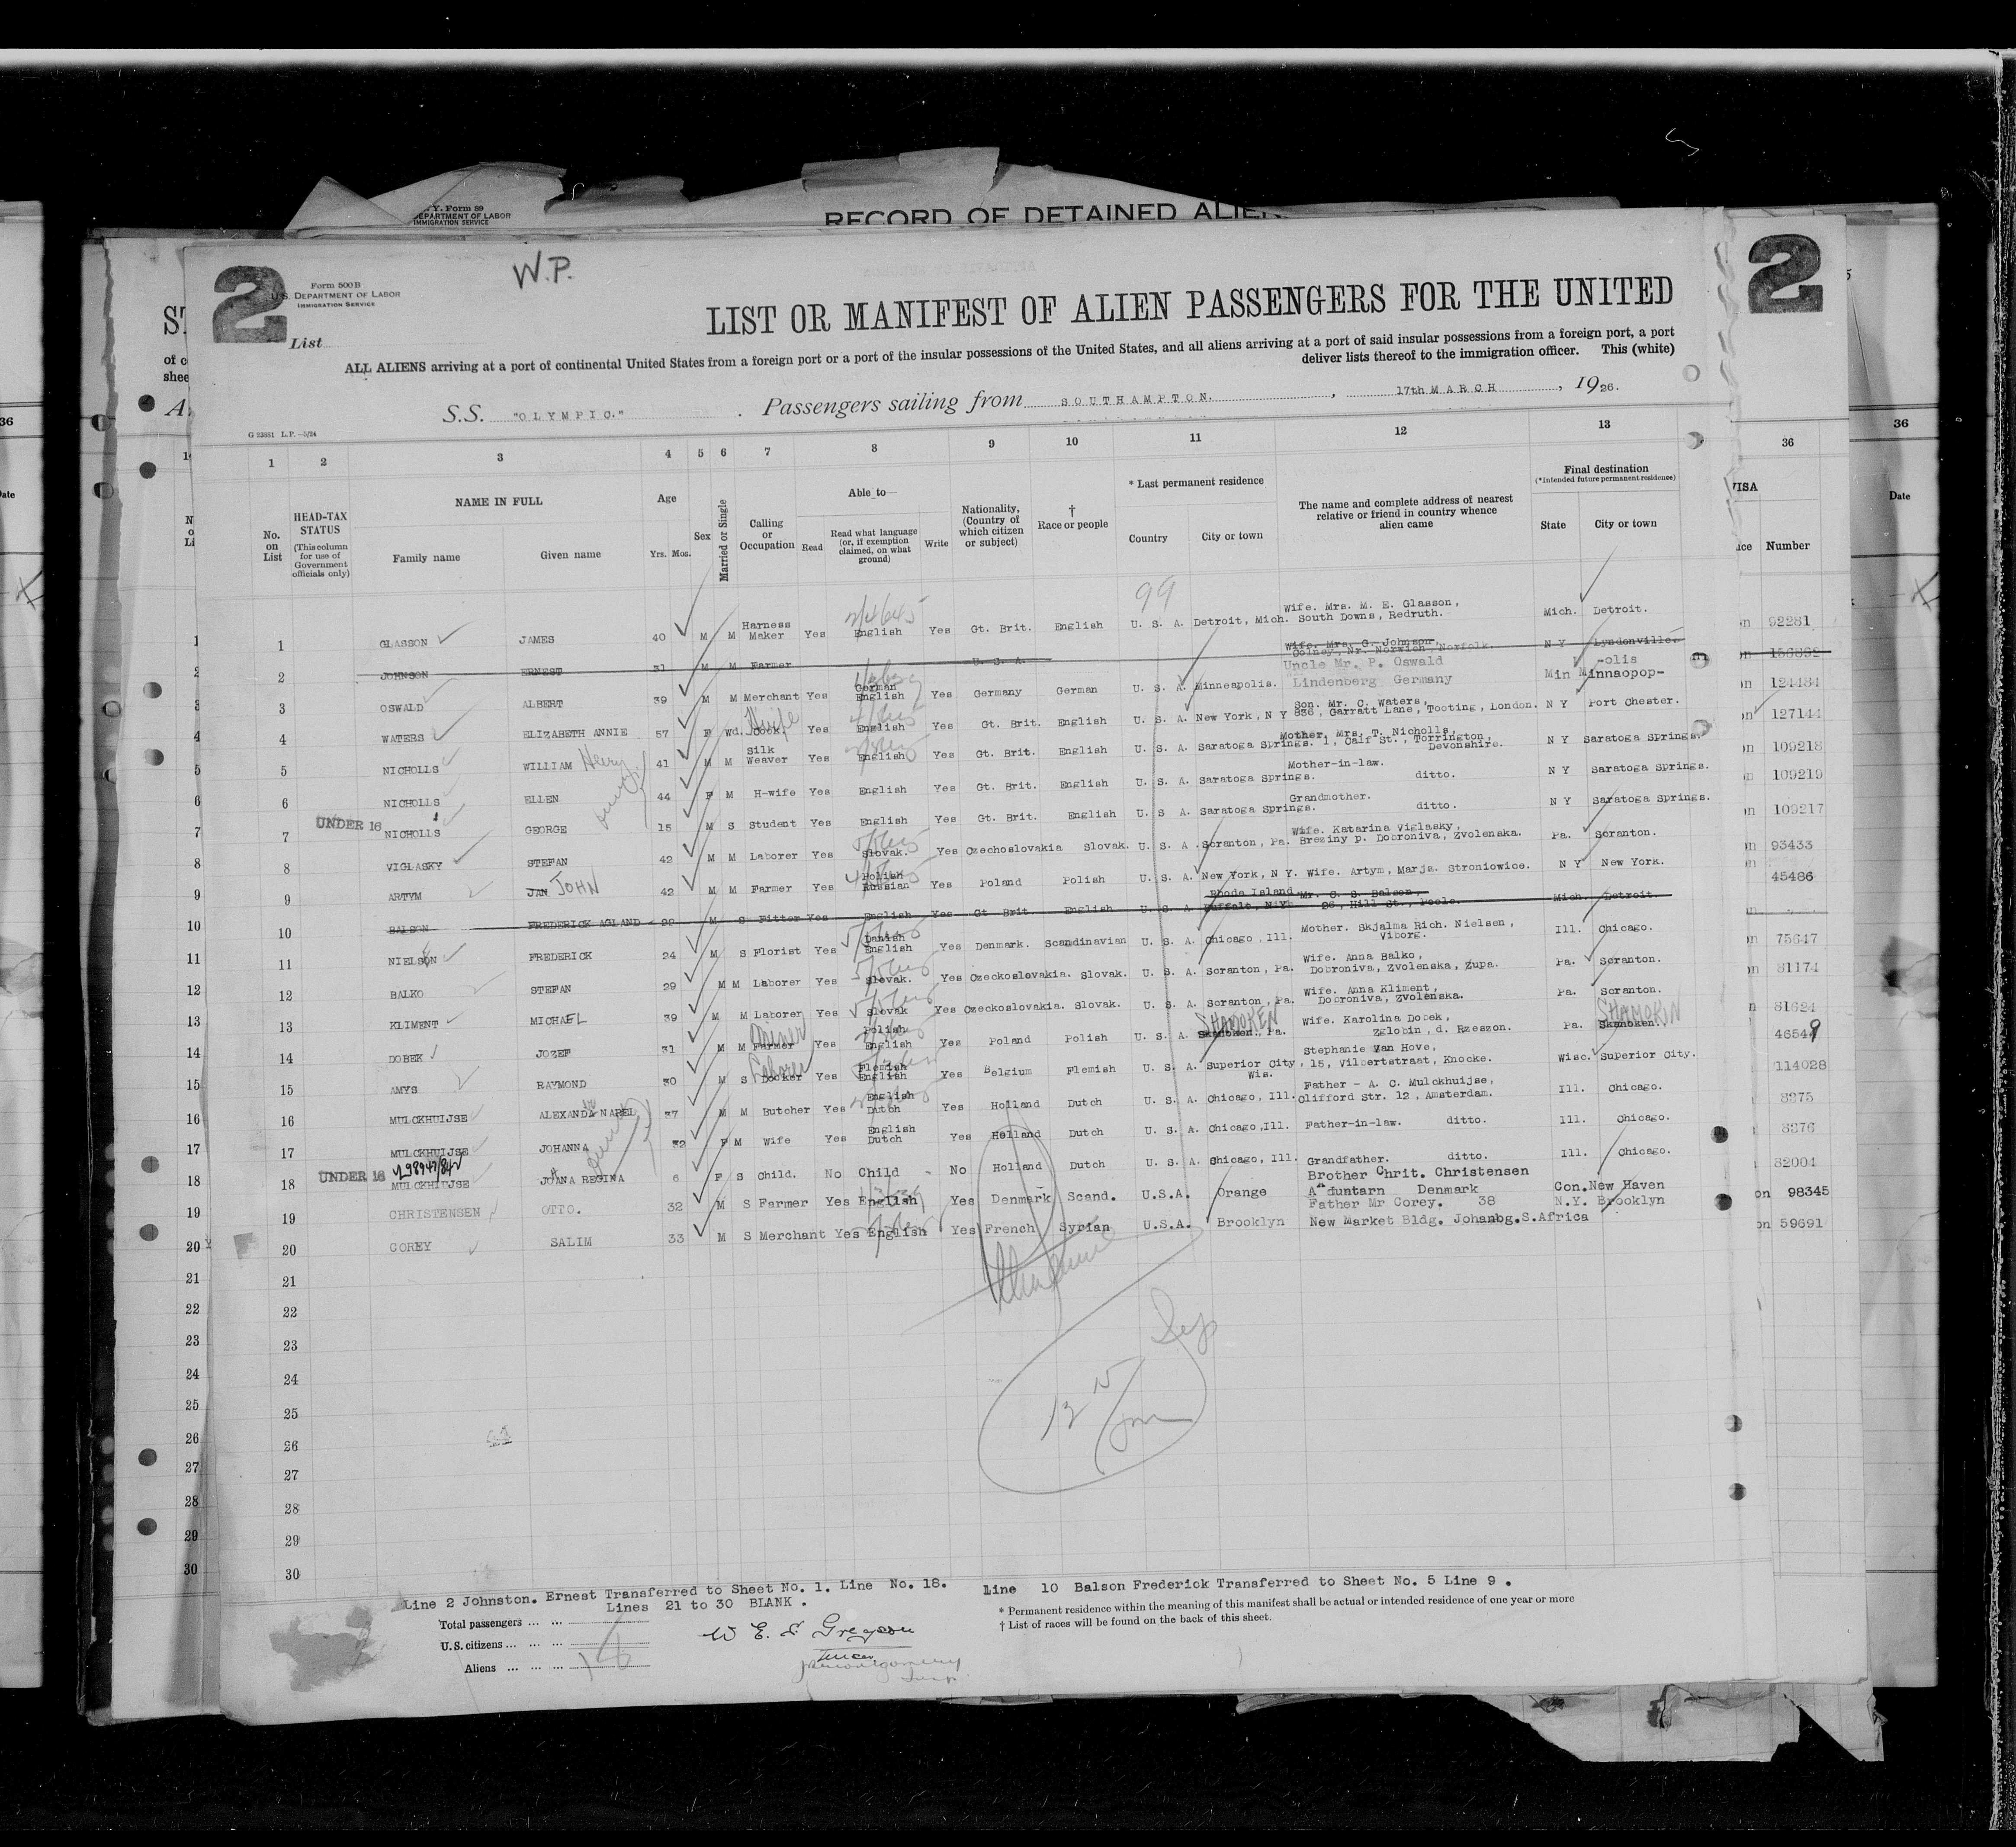 N.Y. Form 89
DEPARTMENT OF LABOR
IMMIGRATION SERVICE
RECORD OF DETAINED ALIE
2
Form 500B
U.S. DEPARTMENT OF LABOR
IMMIGRATION SERVICE
W.P.
2
List
LIST OR MANIFEST OF ALIEN PASSENGERS FOR THE UNITED
ALL ALIENS arriving at a port of continental United States from a foreign port or a port of the insular possessions of the United States, and all aliens arriving at a port of said insular possessions from a foreign port, a port
deliver lists thereof to the immigration officer. This (white)
S.S. "OLYMPIC." Passengers sailing from SOUTHAMPTON. , 17th MARCH , 1926.
G 23881 L.P.—5/24
1 2 3 4 5 6 7 8 9 10 11 12 13 36
No. on List
HEAD-TAX STATUS (This column for use of Government officials only)
NAME IN FULL
Family name Given name
Age Yrs. Mos.
Sex
Married or Single
Calling or Occupation
Able to—
Read Read what language (or, if exemption claimed, on what ground) Write
Nationality, (Country of which citizen or subject)
† Race or people
* Last permanent residence
Country City or town
The name and complete address of nearest relative or friend in country whence alien came
Final destination (*Intended future permanent residence)
State City or town
VISA
Number
Date
99
1 GLASSON JAMES 40 M M Harness Maker Yes English Yes Gt. Brit. English U. S. A. Detroit, Mich. Wife. Mrs. M. E. Glasson, South Downs, Redruth. Mich. Detroit. 92281
2 JOHNSON ERNEST 31 M M Farmer U. S. A. Wife. Mrs. G. Johnson, Colney, Nr. Norwich, Norfolk. N Y Lyndonville.
3 OSWALD ALBERT 39 M M Merchant Yes German English Yes Germany German U. S. A. Minneapolis. Uncle Mr. P. Oswald Lindenberg Germany Min Minnaopop-olis 124484
4 WATERS ELIZABETH ANNIE 57 F Wd. Cook. Yes English Yes Gt. Brit. English U. S. A. New York, N Y Son. Mr. C. Waters, 836, Garratt Lane, Tooting, London. N Y Port Chester. 127144
5 NICHOLLS WILLIAM Henry 41 M M Silk Weaver Yes English Yes Gt. Brit. English U. S. A. Saratoga Springs. Mother, Mrs. T. Nicholls, 1, Calf St., Torrington, Devonshire. N Y Saratoga Springs. 109218
6 NICHOLLS ELLEN 44 F M H-wife Yes English Yes Gt. Brit. English U. S. A. Saratoga Springs. Mother-in-law. ditto. N Y Saratoga Springs. 109219
7 UNDER 16 NICHOLLS GEORGE 15 M S Student Yes English Yes Gt. Brit. English U. S A. Saratoga Springs. Grandmother. ditto. N Y Saratoga Springs. 109217
8 VIGLASKY STEFAN 42 M M Laborer Yes Slovak. Yes Czechoslovakia Slovak. U. S. A. Scranton, Pa. Wife. Katarina Viglasky, Breziny p. Dobroniva, Zvolenska. Pa. Scranton. 93433
9 ARTYM JAN JOHN 42 M M Farmer Yes Polish Russian Yes Poland Polish U. S. A. New York, N Y. Wife. Artym, Marja. Stroniowice. N Y New York. 45486
10 BALSON FREDERICK AGLAND M S Fitter Yes English Yes Gt Brit. English U. S. A. Rhode Island Buffalo, N Y Mr. C. S. Balson, 26, Hill St., Poole. Mich. Detroit.
11 NIELSEN FREDERICK 24 M S Florist Yes Danish English Yes Denmark. Scandinavian U. S. A. Chicago, Ill. Mother. Skjalma Rich. Nielsen, Viborg. Ill. Chicago. 75647
12 BALKO STEFAN 29 M M Laborer Yes Slovak. Yes Czeckoslovakia. Slovak. U. S. A. Scranton, Pa. Wife. Anna Balko, Dobroniva, Zvolenska, Zupa. Pa. Scranton. 81174
13 KLIMENT MICHAEL 39 M M Laborer Yes Slovak Yes Czeckoslovakia. Slovak. U. S. A. Scranton, Pa. Wife. Anna Kliment, Dobroniva, Zvolenska. Pa. Scranton. 81624
14 DOBEK JOZEF 31 M M Farmer Miner Yes Polish English Yes Poland Polish U. S. A. Skamoken. Pa. SHAMOKEN Wife. Karolina Dobek, Zglobin, d. Rzeszon. Pa. Skamoken. SHAMOKIN 46549
15 AMYS RAYMOND 30 M S Docker Laborer Yes Flemish English Yes Belgium Flemish U. S. A. Superior City, Wis. Stephanie Van Hove, 15, Vilbertstraat, Knocke. Wisc. Superior City. 114028
16 MULCKHUIJSE ALEXANDA NAREL 37 M M Butcher Yes English Dutch Yes Holland Dutch U. S. A. Chicago, Ill. Father - A. C. Mulckhuijse, Clifford Str. 12, Amsterdam. Ill. Chicago. 8375
17 MULCKHUIJSE JOHANNA 32 F M Wife Yes English Dutch Yes Holland Dutch U. S. A. Chicago, Ill. Father-in-law. ditto. Ill. Chicago. 8376
18 UNDER 16 MULCKHUIJSE JOANA REGINA 6 F S Child. No Child - No Holland Dutch U. S. A. Chicago, Ill. Grandfather. ditto. Ill. Chicago. 82004
19 CHRISTENSEN OTTO. 32 M S Farmer Yes English Yes Denmark Scand. U.S.A. Orange Brother Chrit. Christensen A duntarn Denmark Con. New Haven 98345
20 COREY SALIM 33 M S Merchant Yes English Yes French Syrian U.S.A. Brooklyn Father Mr Corey. 38 New Market Bldg. Johanbg. S.Africa N.Y. Brooklyn 59691
21
22
23
24
25
26
27
28
29
30
Line 2 Johnston. Ernest Transferred to Sheet No. 1. Line No. 18. Line 10 Balson Frederick Transferred to Sheet No. 5 Line 9.
Lines 21 to 30 BLANK.
Total passengers ... ...
U.S. citizens ... ... ...
Aliens ... ... ... 18
* Permanent residence within the meaning of this manifest shall be actual or intended residence of one year or more
† List of races will be found on the back of this sheet.